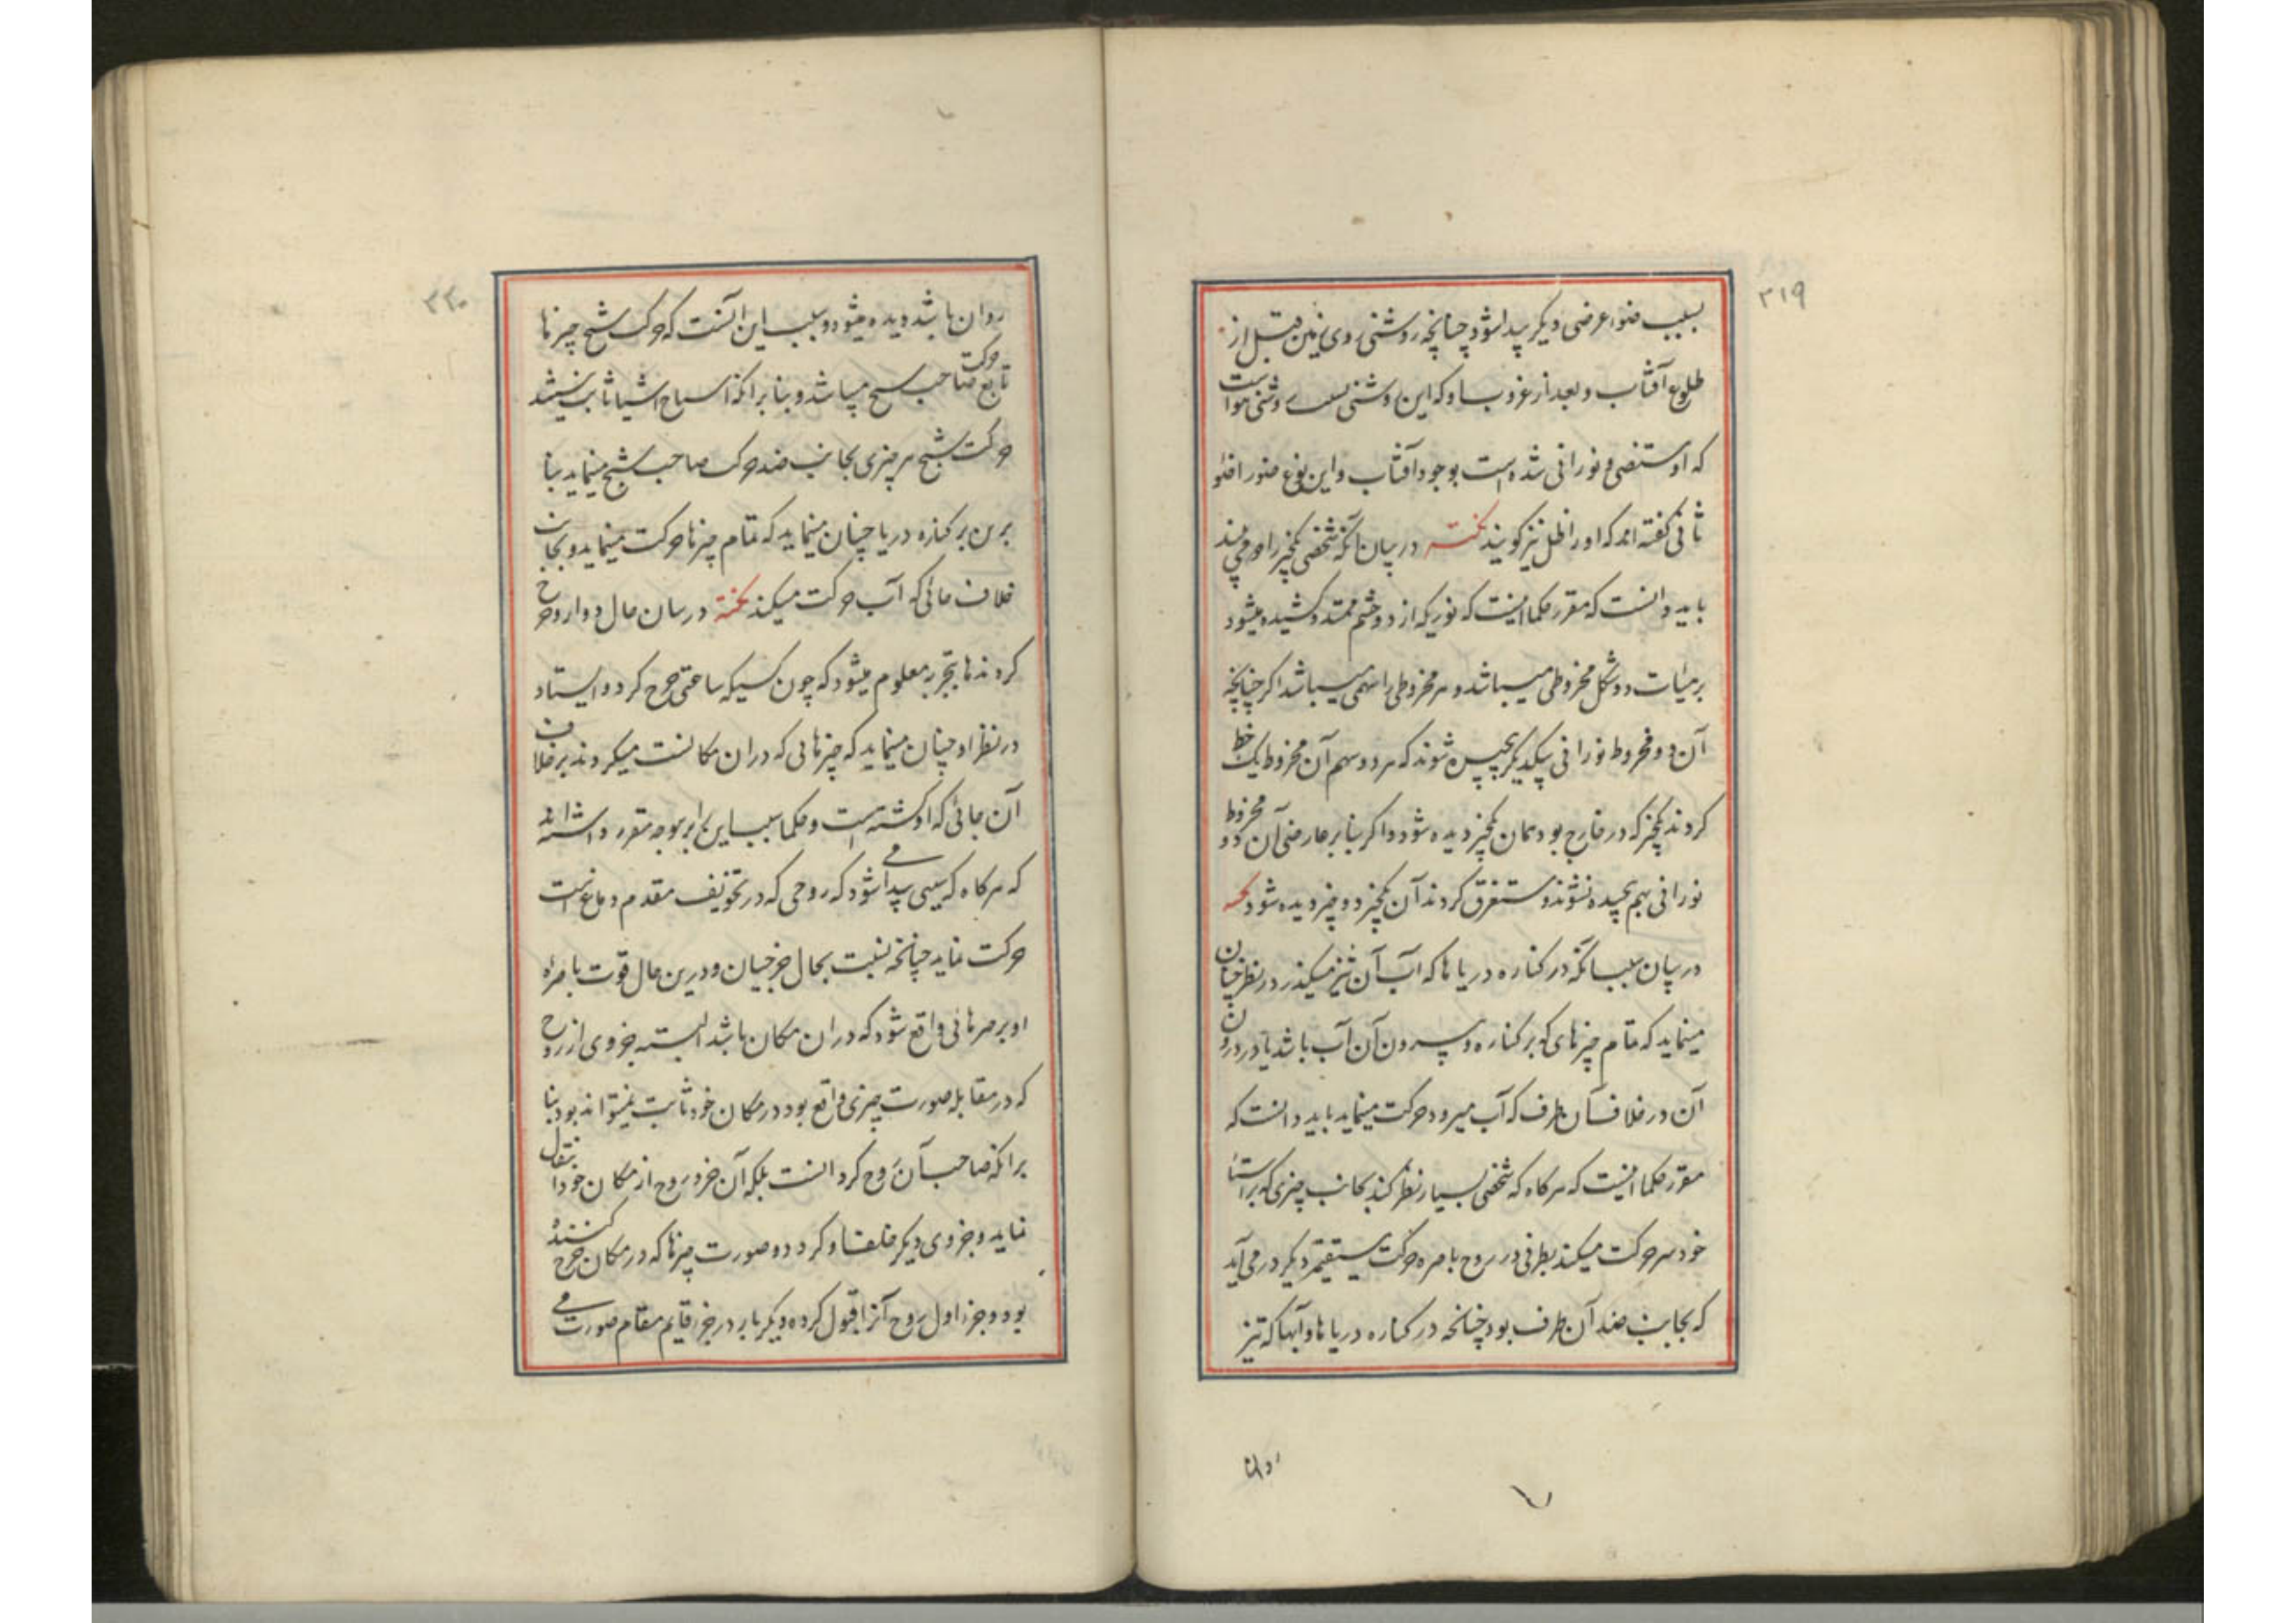 ۲۱۹
بسبب ضوء عرضی دیگر پیدا شود چنانچه روشنی روی زمین قبل از
طلوع آفتاب و بعد از غروب او که این روشنی بسبب روشنی هوا است
که او مستضی و نورانی شده است بوجود آفتاب و این نوع ضو را ضو
ثانی گفته اند که او را ظل نیز گویند نکته در بیان آنکه شخصی یکچیز را دو می بیند
باید دانست که مقرر حکما اینست که نوریکه از دو چشم ممتد و کشیده میشود
برهیات دو شکل مخروطی میباشد و هر مخروطی را سهمی میباشد اگر چنانچه
آن دو مخروط نورانی بیکدیگر پیچیده شوند که هر دو سهم آن مخروط یک خط
کردند یکچیز که در خارج بود همان یکچیز دیده شود و اگر بنا بر عارضی آن دو مخروط
نورانی بهم پیچیده نشوند و متفرق کردند آن یکچیز دو چیز دیده شود نکته
در بیان سبب آنکه در کناره دریا ها که آب آن تیز میکذرد در نظر چنان
مینماید که تمام چیزهای که بر کناره و بیرون آن آب باشد یا در درون
آن در خلاف آن طرف که آب میرود حرکت مینماید باید دانست که
مقرر حکما اینست که هرکاه که شخصی بسیار نظر کند بجانب چیزی که براستا
خود سر حرکت میکند بطرفی در روح باصره حرکت مستقیم دیگر در می آید
که بجانب ضد آن طرف بود چنانچه در کناره دریا ها و آبها که تیز
روان
۲۲۰
روان باشد دیده میشود و سبب این آنست که حرکت شبح چیزها
تابع حرکت صاحب شبح میباشد و بنا برانکه اشباح اشیا ثابت نیستند
حرکت شبح هر چیزی بجانب ضد حرکت صاحب شبح مینماید بنا
برین بر کناره دریا چنان مینماید که تمام چیزها حرکت مینماید و بجانب
خلاف جائی که آب حرکت میکند نکته در بیان حال دوار و چرخ
کردنها بتجربه معلوم میشود که چون کسیکه ساعتی چرخ کرد و ایستاد
در نظر او چنان مینماید که چیزهائی که در ان مکانست میکردند بر خلاف
آن جائی که او کشته است و حکما سبب این را برین وجه مقرر داشته اند
که هرکاه که سببی پیدا می شود که روحی که در تجویف مقدم دماغ است
حرکت نماید چنانچه نسبت بحال چرخیان و درین حال قوت باصره
او بر هر جائی واقع شود که در ان مکان باشد البته جزوی از روح
که در مقابله صورت چیزی واقع بود در مکان خود ثابت نمیتواند بود بنا
برانکه صاحب آن روح کردانست بلکه آن جزو روح از مکان خود انتقال
نماید و جزوی دیگر خلف او کردد و صورت چیزها که در مکان چرخ کننده
بود و جزو اول روح آنرا قبول کرده دیگر بار در جزو قایم مقام صورت می